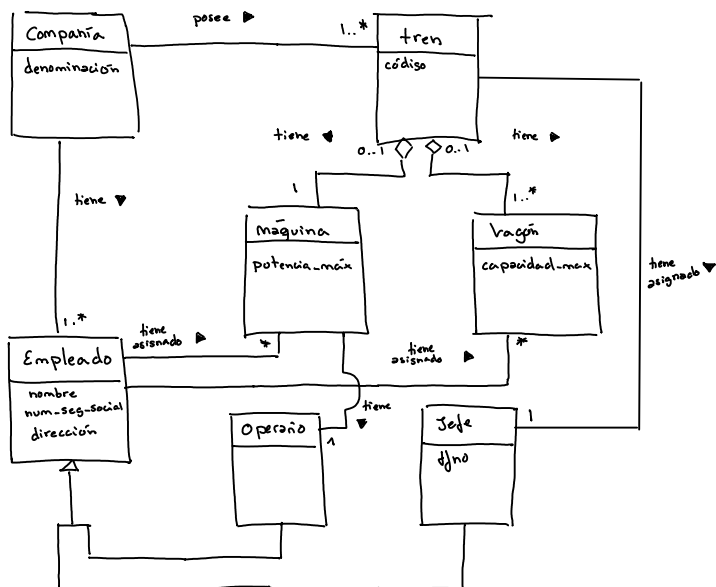 posee ▶
Compañía
denominación
1..*
tren
código
tiene ◀
tiene ▶
0..1
0..1
tiene ▼
1
1..*
máquina
potencia_máx
Vagón
capacidad_max
tiene
asignado ▼
1..*
tiene
asisnado ▶
*
tiene
asisnado ▶
*
Empleado
nombre
num_seg_social
dirección
tiene
▼
1
Operario
Jefe
1